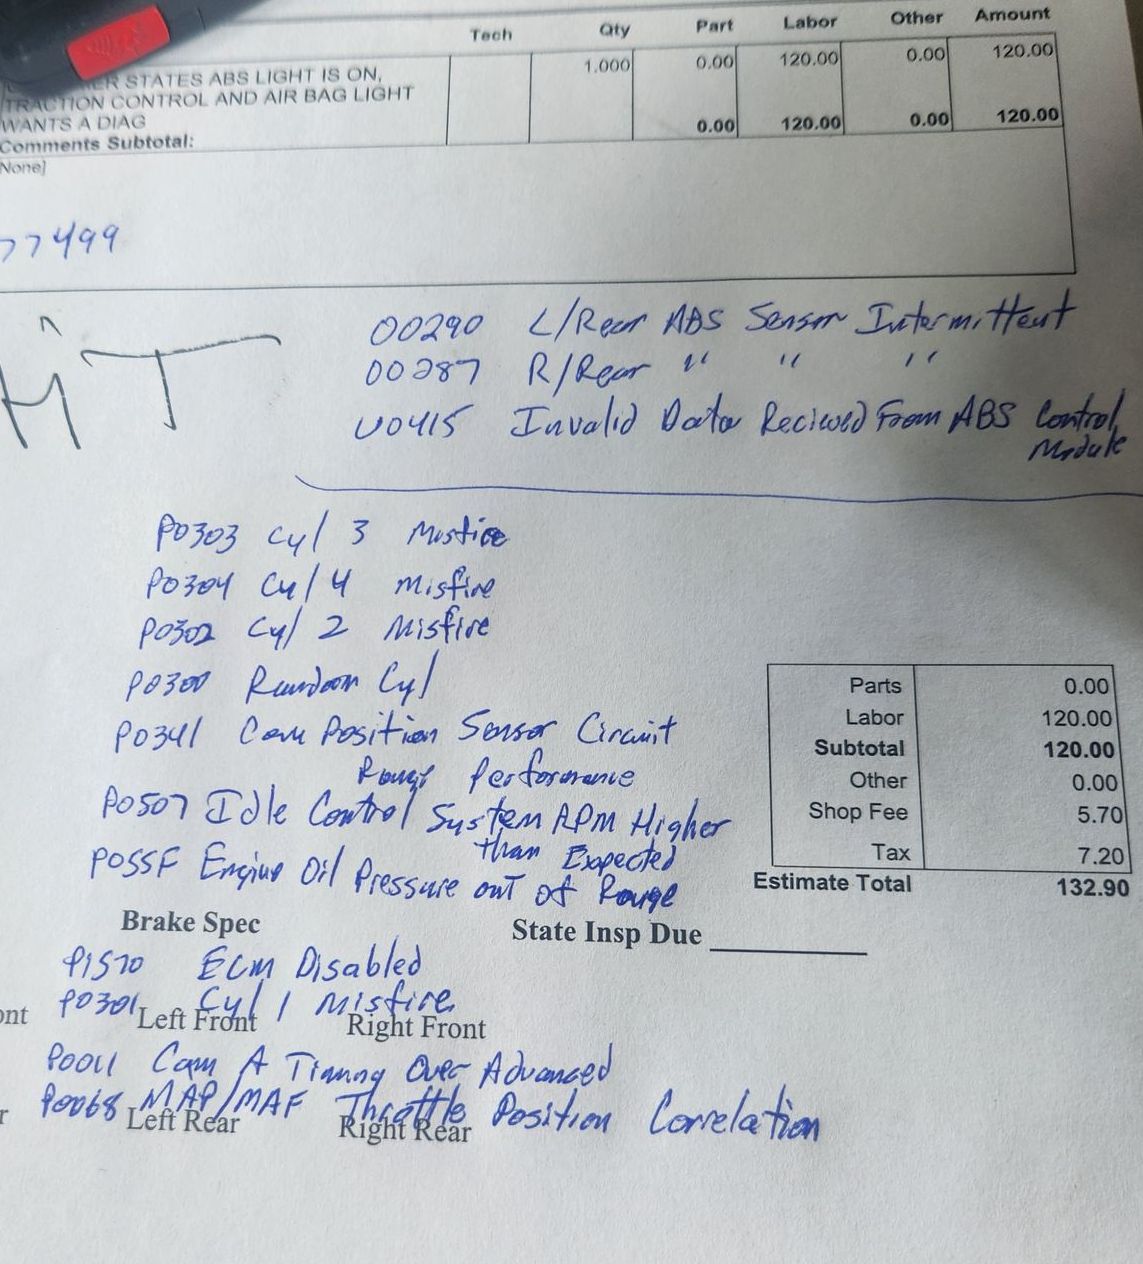 Tech Qty Part Labor Other Amount
ER STATES ABS LIGHT IS ON, 1.000 0.00 120.00 0.00 120.00
TRACTION CONTROL AND AIR BAG LIGHT
WANTS A DIAG 0.00 120.00 0.00 120.00
Comments Subtotal:
None]
77499
00290 L/Rear ABS Sensor Intermittent
00287 R/Rear " " "
U0415 Invalid Data Recieved From ABS Control
Module
P0303 Cyl 3 Misfire
P0304 Cyl 4 Misfire
P0302 Cyl 2 Misfire
P0300 Random Cyl
P0341 Cam Position Sensor Circuit
Range Performance
P0507 Idle Control System RPM Higher
than Expected
P055F Engine Oil Pressure out of Range
Parts 0.00
Labor 120.00
Subtotal 120.00
Other 0.00
Shop Fee 5.70
Tax 7.20
Estimate Total 132.90
Brake Spec State Insp Due
P1570 ECM Disabled
P0301 Cyl 1 Misfire
ont Left Front Right Front
P0011 Cam A Timing Over Advanced
P0068 MAP/MAF Throttle Position Correlation
r Left Rear Right Rear